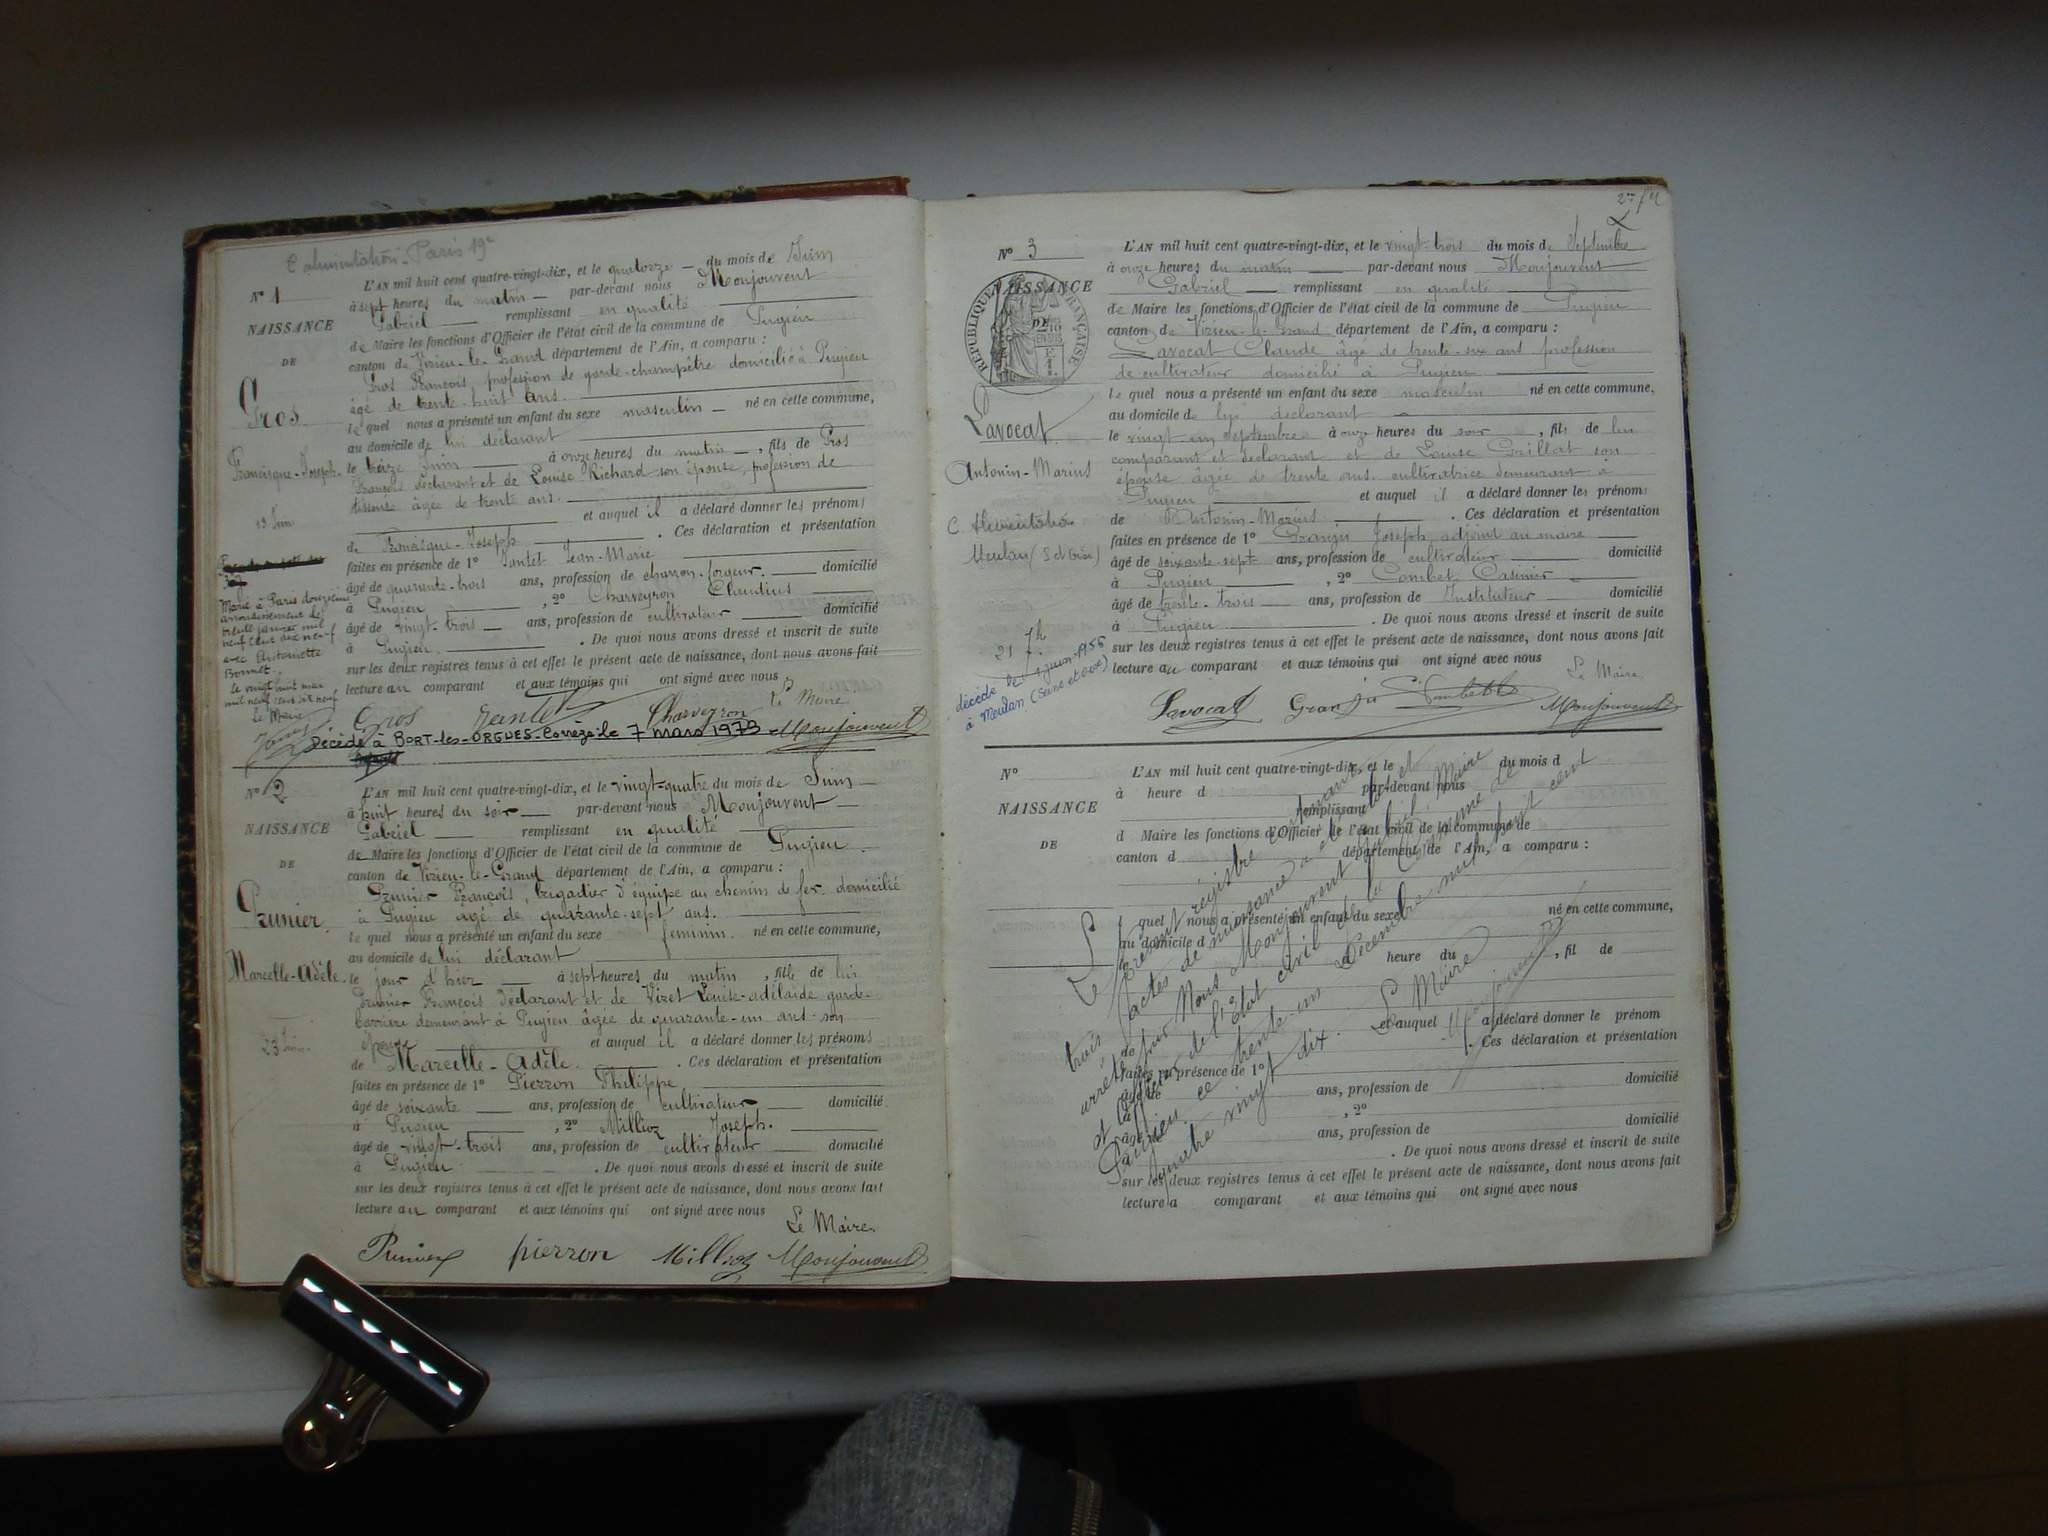 C alimentation - Paris 19e
N° 1
NAISSANCE
DE
Gros
Francisque-Joseph
13 Juin
Marié à Paris douzième
arrondissement le
trente janvier mil
neuf cent dix neuf
avec Antoinette
Bonnet.
Le vingt huit mai
mil neuf cent dix neuf
Le Maire
L'AN mil huit cent quatre-vingt-dix, et le quatorze du mois de Juin
à sept heures du matin par-devant nous Monjouvent
Gabriel remplissant en qualité
de Maire les fonctions d'Officier de l'état civil de la commune de Pugieu
canton de Virieu-le-Grand département de l'Ain, a comparu :
Gros François, profession de garde-champêtre domicilié à Pugieu
âgé de trente-huit ans.
lequel nous a présenté un enfant du sexe masculin né en cette commune,
au domicile de lui déclarant
le treize Juin à onze heures du matin, fils de Gros
François déclarant et de Louise Richard son épouse, profession de
âgée de trente ans.
et auquel il a déclaré donner les prénoms
de Francisque-Joseph. Ces déclaration et présentation
faites en présence de 1° Jantet Jean-Marie
âgé de quarante-trois ans, profession de charron-forgeur. domicilié
à Pugieu, 2° Charveyron Claudius
âgé de vingt-trois ans, profession de cultivateur domicilié
à Pugieu. De quoi nous avons dressé et inscrit de suite
sur les deux registres tenus à cet effet le présent acte de naissance, dont nous avons fait
lecture au comparant et aux témoins qui ont signé avec nous
Le Maire
Gros Jantet Charveyron Monjouvent
Décédé à BORT-les-ORGUES-Corrèze le 7 mars 1973
N° 2
NAISSANCE
DE
Prunier.
Marcelle-Adèle.
23 Juin.
L'AN mil huit cent quatre-vingt-dix, et le vingt-quatre du mois de Juin
à huit heures du soir par-devant nous Monjouvent
Gabriel remplissant en qualité
de Maire les fonctions d'Officier de l'état civil de la commune de Pugieu.
canton de Virieu-le-Grand département de l'Ain, a comparu :
Prunier François, brigadier d'équipe au chemin de fer. domicilié
à Pugieu âgé de quarante-sept ans.
lequel nous a présenté un enfant du sexe féminin. né en cette commune,
au domicile de lui déclarant
le jour d'hier à sept heures du matin, fille de lui
Prunier François déclarant et de Vizet Louise-adélaïde garde-
barrière demeurant à Pugieu âgée de quarante-un ans son
épouse et auquel il a déclaré donner les prénoms
de Marcelle-Adèle. Ces déclaration et présentation
faites en présence de 1° Pierron Philippe
âgé de soixante ans, profession de cultivateur domicilié
à Pugieu, 2° Millioz Joseph.
âgé de vingt-trois ans, profession de cultivateur domicilié
à Pugieu. De quoi nous avons dressé et inscrit de suite
sur les deux registres tenus à cet effet le présent acte de naissance, dont nous avons fait
lecture au comparant et aux témoins qui ont signé avec nous
Le Maire.
Prunier pierron Millioz Monjouvent
27/4
N° 3
NAISSANCE
DE
RÉPUBLIQUE FRANÇAISE
Lavocat
Antonin-Marius
C. Alimentation
Meulan (S et Oise)
21 7h
décédé le 1 juin 1956
à Meulan (Seine et Oise)
L'AN mil huit cent quatre-vingt-dix, et le vingt-trois du mois de Septembre
à onze heures du matin par-devant nous Monjouvent
Gabriel remplissant en qualité
de Maire les fonctions d'Officier de l'état civil de la commune de Pugieu
canton de Virieu-le-Grand département de l'Ain, a comparu :
Lavocat Claude âgé de trente-six ans profession
de cultivateur domicilié à Pugieu
lequel nous a présenté un enfant du sexe masculin né en cette commune,
au domicile de lui déclarant
le vingt-un Septembre à onze heures du soir, fils de lui
comparant et déclarant et de Louise Grillat son
épouse âgée de trente ans. cultivatrice demeurant à
Pugieu et auquel il a déclaré donner les prénoms
de Antonin-Marius. Ces déclaration et présentation
faites en présence de 1° Granju Joseph, adjoint au maire
âgé de soixante-sept ans, profession de cultivateur domicilié
à Pugieu, 2° Combet Casimir
âgé de trente-trois ans, profession de Instituteur domicilié
à Pugieu. De quoi nous avons dressé et inscrit de suite
sur les deux registres tenus à cet effet le présent acte de naissance, dont nous avons fait
lecture au comparant et aux témoins qui ont signé avec nous
Le Maire
Lavocat Granju Combet Monjouvent
N°
NAISSANCE
DE
L'AN mil huit cent quatre-vingt-dix, et le du mois d
à heure d par-devant nous
remplissant
d Maire les fonctions d'Officier de l'état civil de la commune de
canton d département de l'Ain, a comparu :
l quel nous a présenté un enfant du sexe né en cette commune,
au domicile d
le à heure du, fil de
et auquel a déclaré donner le prénom
de. Ces déclaration et présentation
faites en présence de 1°
âgé de ans, profession de domicilié
à, 2°
âgé de ans, profession de domicilié
à. De quoi nous avons dressé et inscrit de suite
sur les deux registres tenus à cet effet le présent acte de naissance, dont nous avons fait
lecture a comparant et aux témoins qui ont signé avec nous
Le présent registre contenant
trois actes de naissance a été clos et
arrêté par Nous Monjouvent Gabriel, Maire
et Officier de l'Etat civil de la Commune de
Pugieu ce trente-un Décembre mil huit cent
quatre vingt dix. Le Maire
Monjouvent